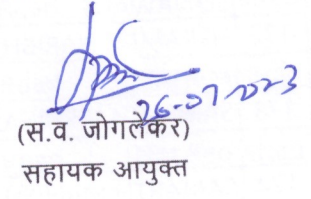 26-07-2023
(स.व. जोगलेकर)
सहायक आयुक्त